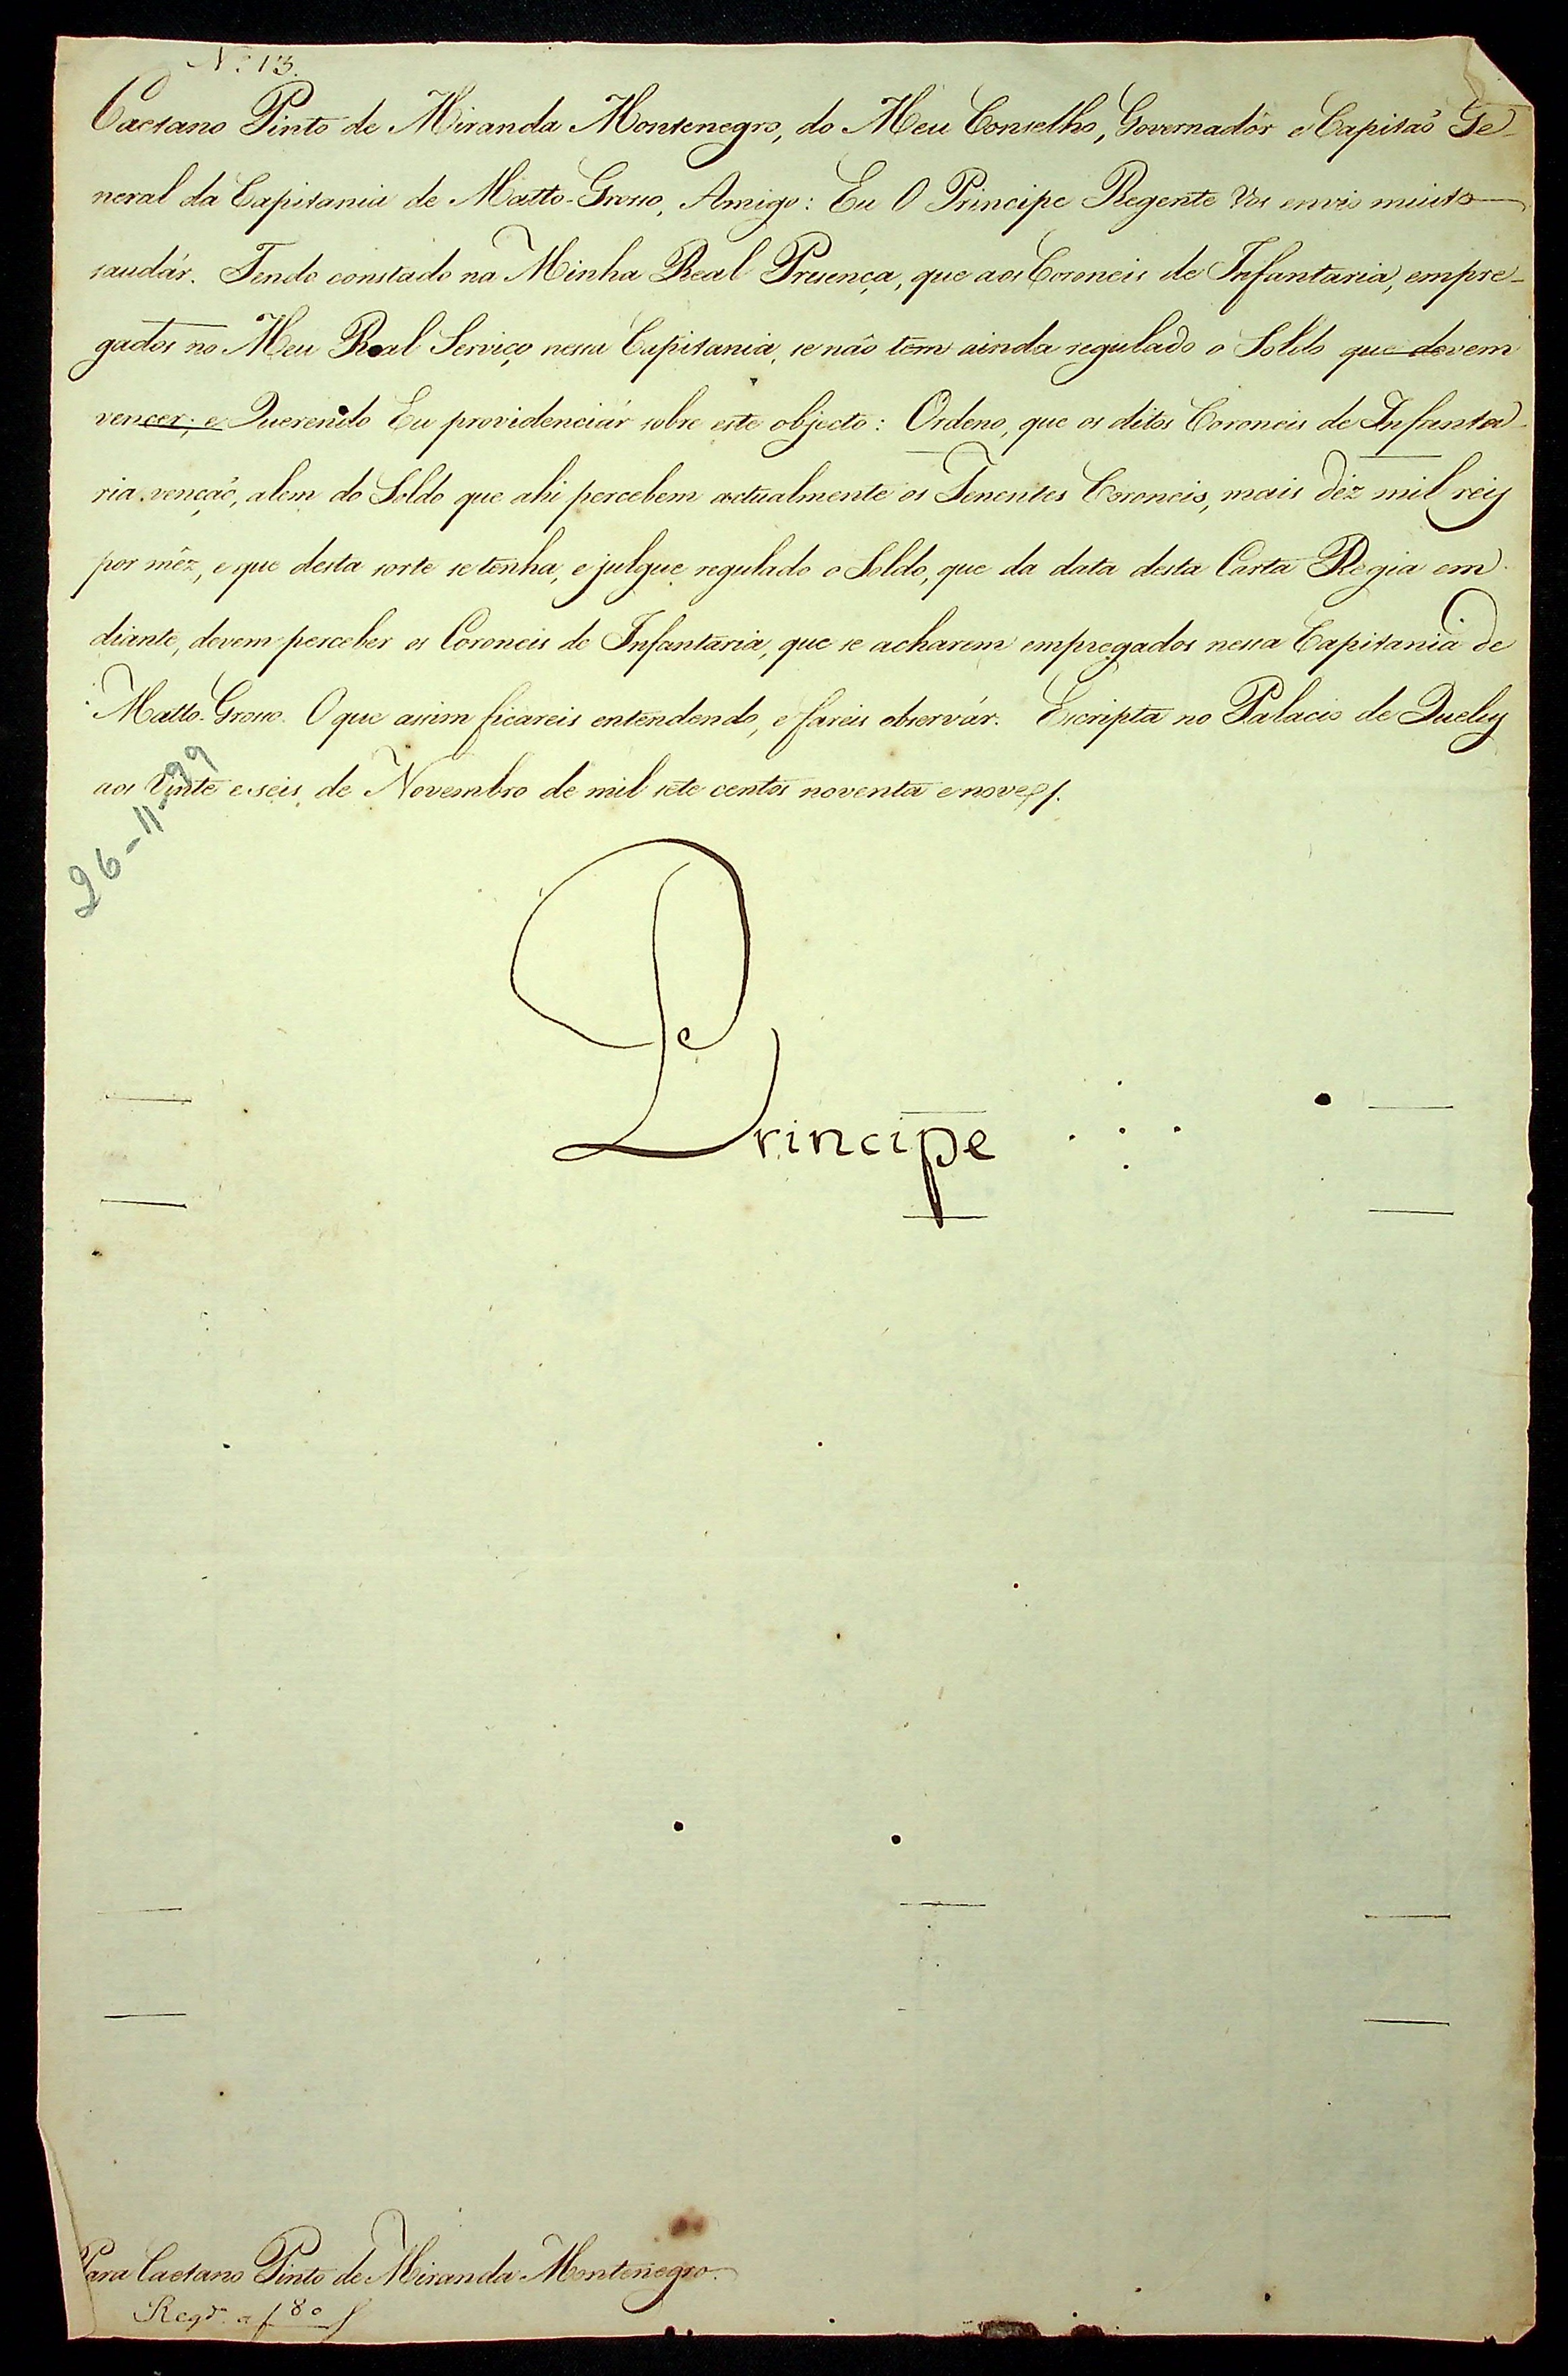 Nº 13.
Caetano Pinto de Miranda Montenegro, do Meu Conselho, Governadôr e Capitaõ Ge-
neral da Capitania de Matto-Grosso, Amigo: Eu O Principe Regente Vos envio muito
saudár. Tendo constado na Minha Real Presença, que aos Coroneis de Infantaria, empre-
gados no Meu Real Serviço nessa Capitania, se não tem ainda regulado o Soldo que devem
vencer; e Querendo Eu providenciár sobre este objecto: Ordeno, que os ditos Coroneis de Infanta-
ria vençaõ, alem do Soldo que ahi percebem actualmente os Tenentes Coroneis, mais dez mil reis
por mêz, e que desta sorte se tenha, e julgue regulado o Soldo, que da data desta Carta Regia em
diante, devem perceber os Coroneis de Infantaria, que se acharem empregados nessa Capitania de
Matto-Grosso. O que assim ficareis entendendo, e fareis observár. Escripta no Palacio de Queluz
aos vinte e seis de Novembro de mil sete centos noventa e nove.
26-11-99
Principe
Para Caetano Pinto de Miranda Montenegro.
Regdº a f 80